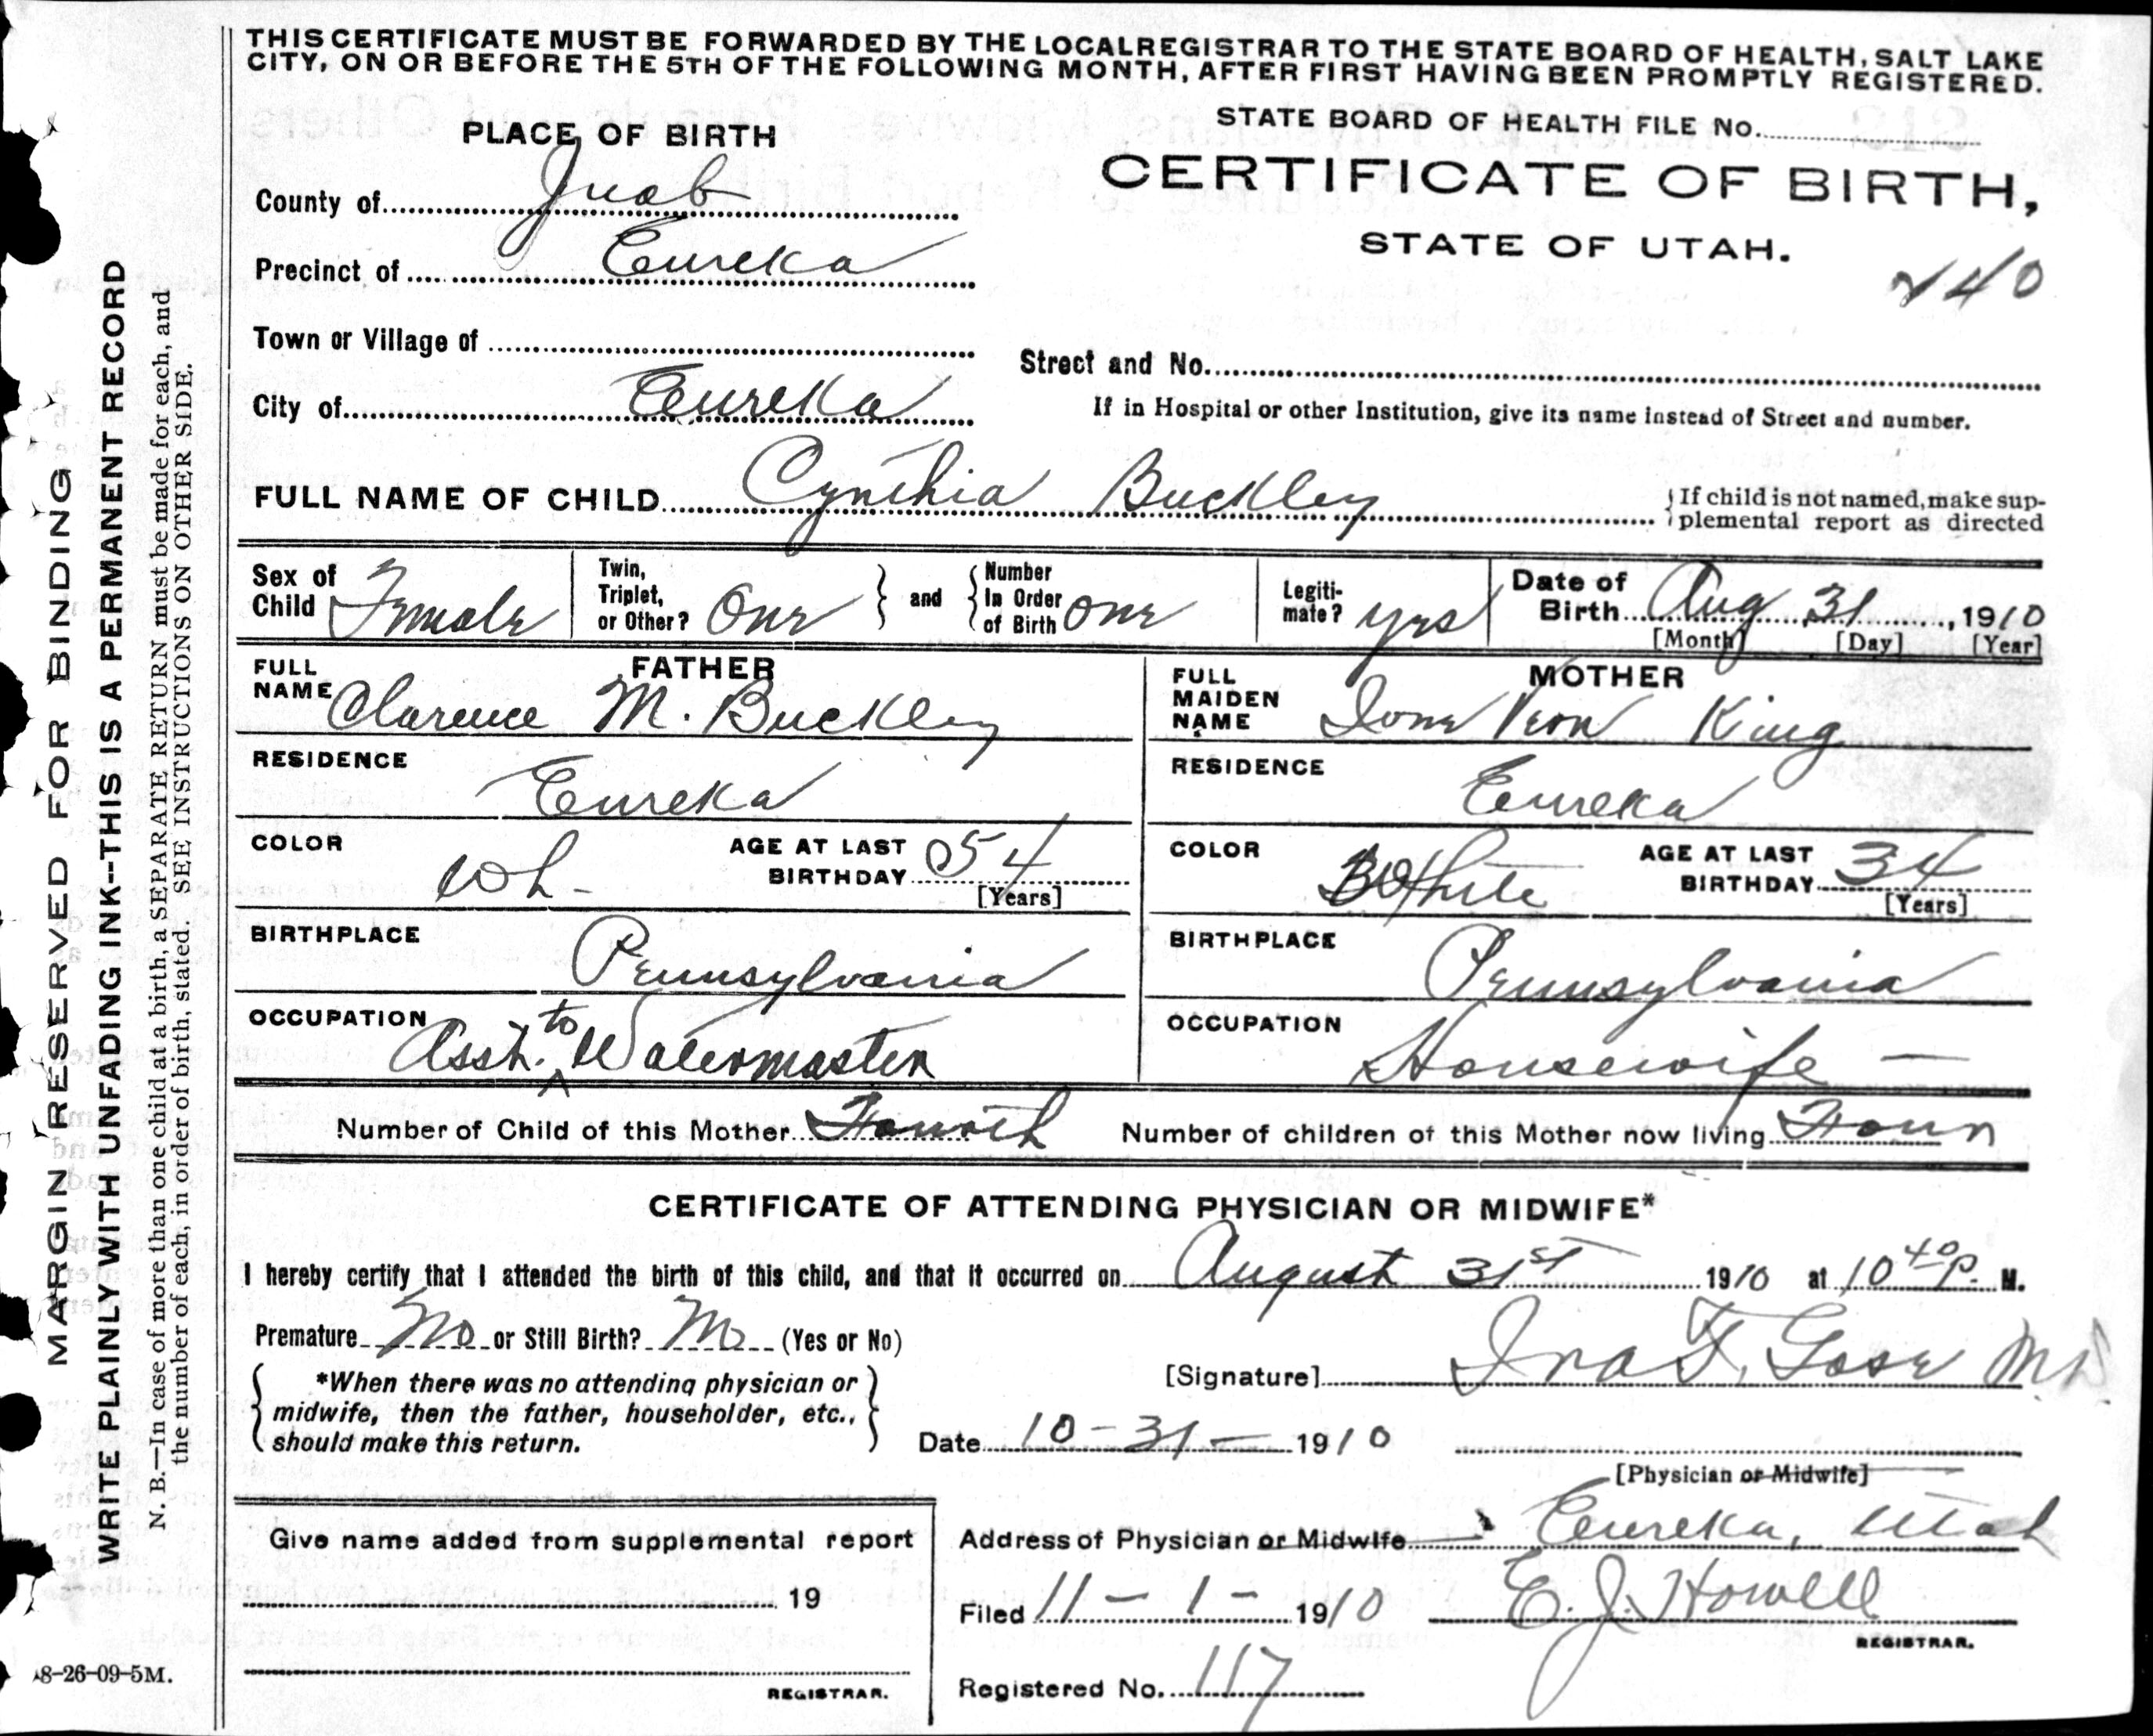 THIS CERTIFICATE MUST BE FORWARDED BY THE LOCAL REGISTRAR TO THE STATE BOARD OF HEALTH, SALT LAKE
CITY, ON OR BEFORE THE 5TH OF THE FOLLOWING MONTH, AFTER FIRST HAVING BEEN PROMPTLY REGISTERED.
STATE BOARD OF HEALTH FILE No.
PLACE OF BIRTH
CERTIFICATE OF BIRTH,
STATE OF UTAH.
140
County of Juab
Precinct of Eureka
Town or Village of
Street and No.
City of Eureka
If in Hospital or other Institution, give its name instead of Street and number.
FULL NAME OF CHILD Cynthia Buckley
If child is not named, make sup-
plemental report as directed
Sex of Child Female
Twin, Triplet, or Other? One
and
Number In Order of Birth One
Legiti-mate? yes
Date of Birth Aug 31, 1910
[Month] [Day] [Year]
FATHER
FULL NAME Clarence M. Buckley
MOTHER
FULL MAIDEN NAME King
RESIDENCE Eureka
RESIDENCE Eureka
COLOR Wh-
AGE AT LAST BIRTHDAY 54
[Years]
COLOR White
AGE AT LAST BIRTHDAY 34
[Years]
BIRTHPLACE Pennsylvania
BIRTHPLACE Pennsylvania
OCCUPATION Asst. to Watermaster
OCCUPATION Housewife —
Number of Child of this Mother Fourth
Number of children of this Mother now living Four
CERTIFICATE OF ATTENDING PHYSICIAN OR MIDWIFE*
I hereby certify that I attended the birth of this child, and that it occurred on August 31st 1910 at 10 40 P. M.
Premature No or Still Birth? No (Yes or No)
*When there was no attending physician or
midwife, then the father, householder, etc.,
should make this return.
[Signature] F. M.D.
Date 10-31- 1910
[Physician or Midwife]
Give name added from supplemental report
19
REGISTRAR.
Address of Physician or Midwife Eureka, Utah
Filed 11-1- 1910 E. J. Howell
REGISTRAR.
Registered No. 117
MARGIN RESERVED FOR BINDING
WRITE PLAINLY WITH UNFADING INK--THIS IS A PERMANENT RECORD
N. B.—In case of more than one child at a birth, a SEPARATE RETURN must be made for each, and
the number of each, in order of birth, stated. SEE INSTRUCTIONS ON OTHER SIDE.
8-26-09-5M.